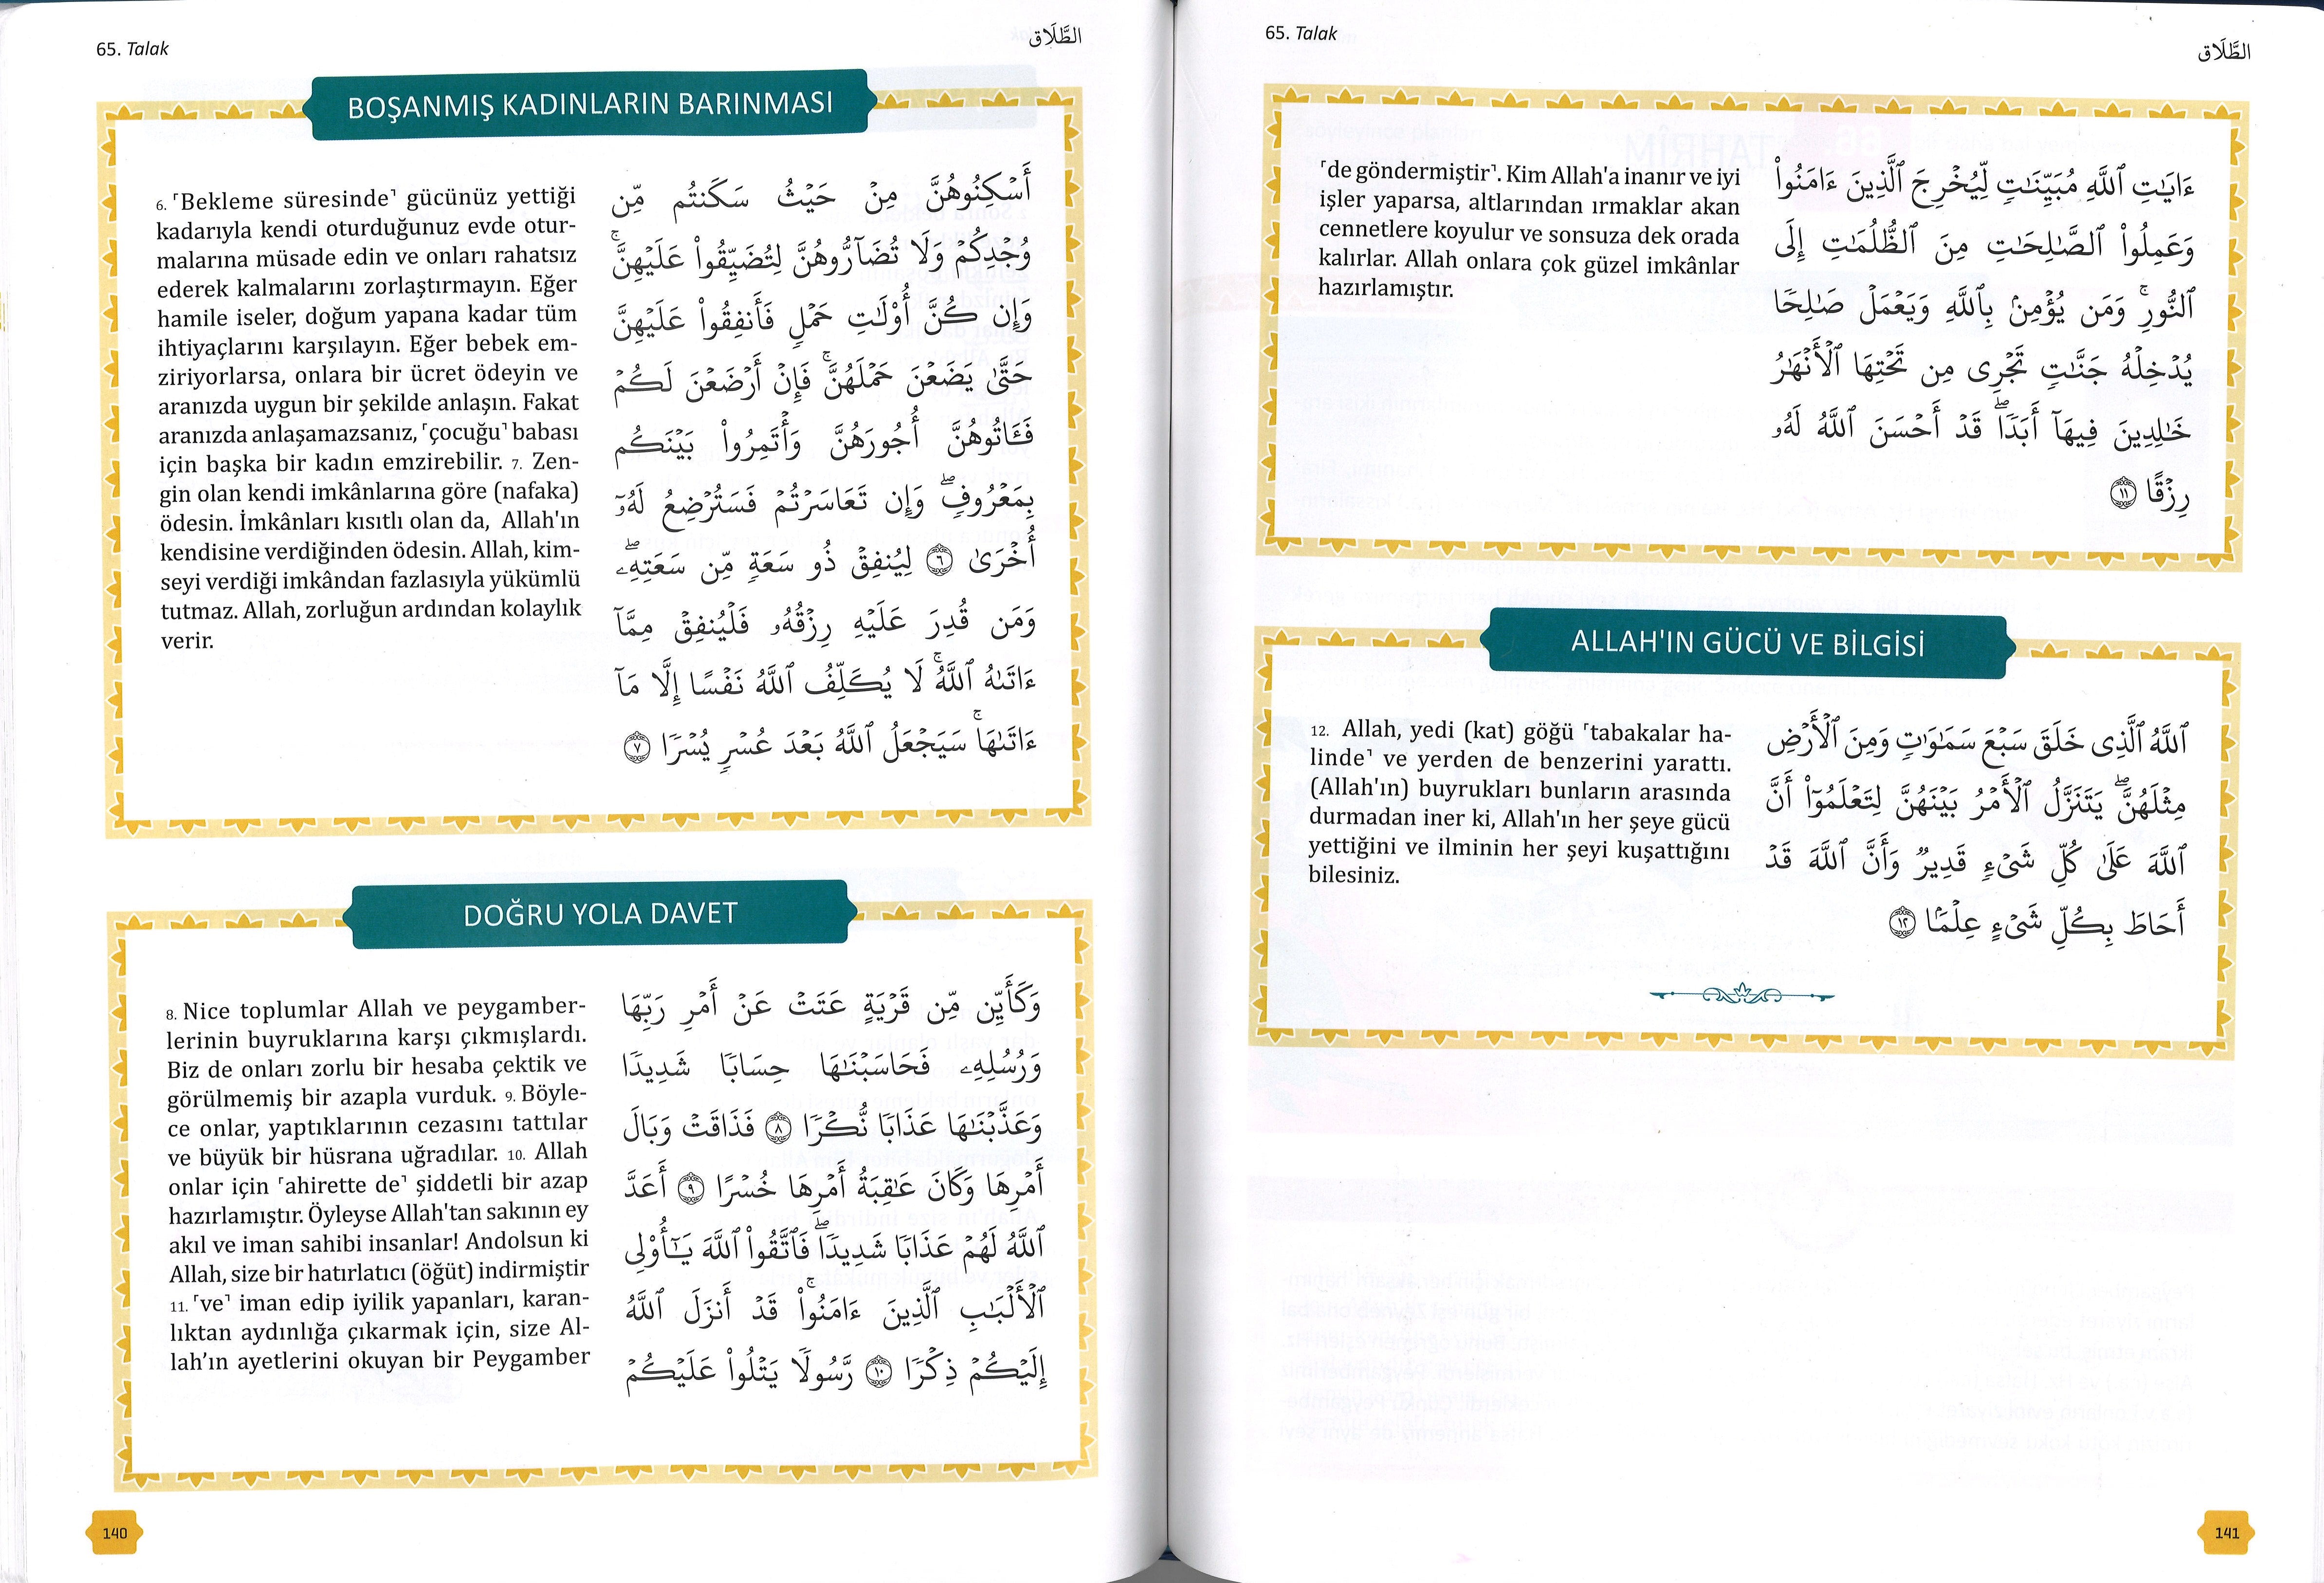 65. Talak
الطَّلَاق
BOŞANMIŞ KADINLARIN BARINMASI
6. ⸢Bekleme süresinde⸣ gücünüz yettiği
kadarıyla kendi oturduğunuz evde otur-
malarına müsade edin ve onları rahatsız
ederek kalmalarını zorlaştırmayın. Eğer
hamile iseler, doğum yapana kadar tüm
ihtiyaçlarını karşılayın. Eğer bebek em-
ziriyorlarsa, onlara bir ücret ödeyin ve
aranızda uygun bir şekilde anlaşın. Fakat
aranızda anlaşamazsanız, ⸢çocuğu⸣ babası
için başka bir kadın emzirebilir. 7. Zen-
gin olan kendi imkânlarına göre (nafaka)
ödesin. İmkânları kısıtlı olan da, Allah'ın
kendisine verdiğinden ödesin. Allah, kim-
seyi verdiği imkândan fazlasıyla yükümlü
tutmaz. Allah, zorluğun ardından kolaylık
verir.
أَسْكِنُوهُنَّ مِنْ حَيْثُ سَكَنتُم مِّن
وُجْدِكُمْ وَلَا تُضَآرُّوهُنَّ لِتُضَيِّقُوا۟ عَلَيْهِنَّ ۚ
وَإِن كُنَّ أُو۟لَـٰتِ حَمْلٍ فَأَنفِقُوا۟ عَلَيْهِنَّ
حَتَّىٰ يَضَعْنَ حَمْلَهُنَّ ۚ فَإِنْ أَرْضَعْنَ لَكُمْ
فَـَٔاتُوهُنَّ أُجُورَهُنَّ وَأْتَمِرُوا۟ بَيْنَكُم
بِمَعْرُوفٍ ۖ وَإِن تَعَاسَرْتُمْ فَسَتُرْضِعُ لَهُۥٓ
أُخْرَىٰ ٦ لِيُنفِقْ ذُو سَعَةٍ مِّن سَعَتِهِۦ ۖ
وَمَن قُدِرَ عَلَيْهِ رِزْقُهُۥ فَلْيُنفِقْ مِمَّآ
ءَاتَىٰهُ ٱللَّهُ ۚ لَا يُكَلِّفُ ٱللَّهُ نَفْسًا إِلَّا مَآ
ءَاتَىٰهَا ۚ سَيَجْعَلُ ٱللَّهُ بَعْدَ عُسْرٍ يُسْرًا ٧
DOĞRU YOLA DAVET
8. Nice toplumlar Allah ve peygamber-
lerinin buyruklarına karşı çıkmışlardı.
Biz de onları zorlu bir hesaba çektik ve
görülmemiş bir azapla vurduk. 9. Böyle-
ce onlar, yaptıklarının cezasını tattılar
ve büyük bir hüsrana uğradılar. 10. Allah
onlar için ⸢ahirette de⸣ şiddetli bir azap
hazırlamıştır. Öyleyse Allah'tan sakının ey
akıl ve iman sahibi insanlar! Andolsun ki
Allah, size bir hatırlatıcı (öğüt) indirmiştir
11. ⸢ve⸣ iman edip iyilik yapanları, karan-
lıktan aydınlığa çıkarmak için, size Al-
lah’ın ayetlerini okuyan bir Peygamber
وَكَأَيِّن مِّن قَرْيَةٍ عَتَتْ عَنْ أَمْرِ رَبِّهَا
وَرُسُلِهِۦ فَحَاسَبْنَـٰهَا حِسَابًا شَدِيدًا
وَعَذَّبْنَـٰهَا عَذَابًا نُّكْرًا ٨ فَذَاقَتْ وَبَالَ
أَمْرِهَا وَكَانَ عَـٰقِبَةُ أَمْرِهَا خُسْرًا ٩ أَعَدَّ
ٱللَّهُ لَهُمْ عَذَابًا شَدِيدًا ۖ فَٱتَّقُوا۟ ٱللَّهَ يَـٰٓأُو۟لِى
ٱلْأَلْبَـٰبِ ٱلَّذِينَ ءَامَنُوا۟ ۚ قَدْ أَنزَلَ ٱللَّهُ
إِلَيْكُمْ ذِكْرًا ١٠ رَّسُولًا يَتْلُوا۟ عَلَيْكُمْ
140
65. Talak
الطَّلَاق
⸢de göndermiştir⸣. Kim Allah'a inanır ve iyi
işler yaparsa, altlarından ırmaklar akan
cennetlere koyulur ve sonsuza dek orada
kalırlar. Allah onlara çok güzel imkânlar
hazırlamıştır.
ءَايَـٰتِ ٱللَّهِ مُبَيِّنَـٰتٍ لِّيُخْرِجَ ٱلَّذِينَ ءَامَنُوا۟
وَعَمِلُوا۟ ٱلصَّـٰلِحَـٰتِ مِنَ ٱلظُّلُمَـٰتِ إِلَى
ٱلنُّورِ ۚ وَمَن يُؤْمِنۢ بِٱللَّهِ وَيَعْمَلْ صَـٰلِحًا
يُدْخِلْهُ جَنَّـٰتٍ تَجْرِى مِن تَحْتِهَا ٱلْأَنْهَـٰرُ
خَـٰلِدِينَ فِيهَآ أَبَدًا ۖ قَدْ أَحْسَنَ ٱللَّهُ لَهُۥ
رِزْقًا ١١
ALLAH'IN GÜCÜ VE BİLGİSİ
12. Allah, yedi (kat) göğü ⸢tabakalar ha-
linde⸣ ve yerden de benzerini yarattı.
(Allah'ın) buyrukları bunların arasında
durmadan iner ki, Allah'ın her şeye gücü
yettiğini ve ilminin her şeyi kuşattığını
bilesiniz.
ٱللَّهُ ٱلَّذِى خَلَقَ سَبْعَ سَمَـٰوَٰتٍ وَمِنَ ٱلْأَرْضِ
مِثْلَهُنَّ ۖ يَتَنَزَّلُ ٱلْأَمْرُ بَيْنَهُنَّ لِتَعْلَمُوٓا۟ أَنَّ
ٱللَّهَ عَلَىٰ كُلِّ شَىْءٍ قَدِيرٌ وَأَنَّ ٱللَّهَ قَدْ
أَحَاطَ بِكُلِّ شَىْءٍ عِلْمًۢا ١٢
141